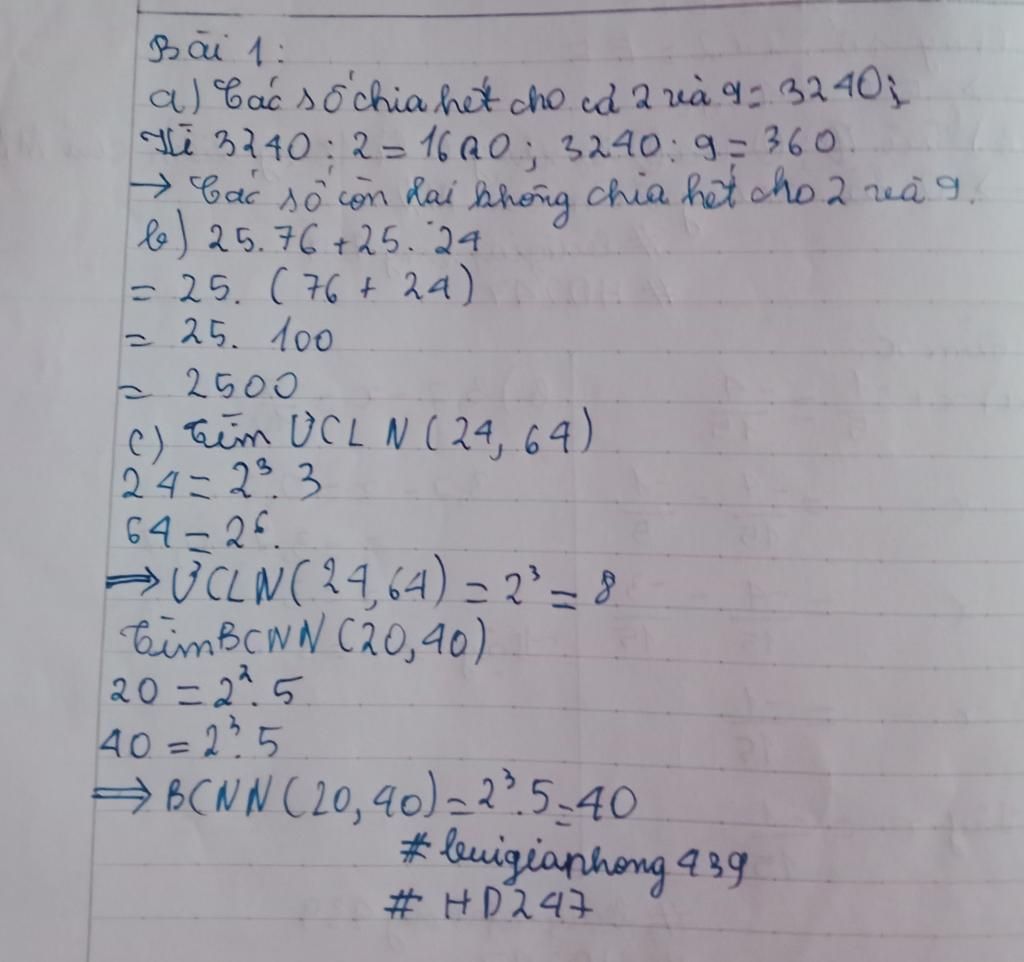 Bài 1:
a) Các số chia hết cho cả 2 và 9 = 3240;
Vì 3240 : 2 = 1620 ; 3240 : 9 = 360
→ Các số còn lại không chia hết cho 2 và 9.
b) 25.76 + 25. 24
= 25. (76 + 24)
= 25. 100
= 2500
c) Tìm ƯCLN (24, 64)
24 = 2³. 3
64 = 2⁶.
⟹ ƯCLN (24, 64) = 2³ = 8
Tìm BCNN (20, 40)
20 = 2². 5
40 = 2³. 5
⟹ BCNN (20, 40) = 2³. 5 = 40
# buigiaphong439
# HD247